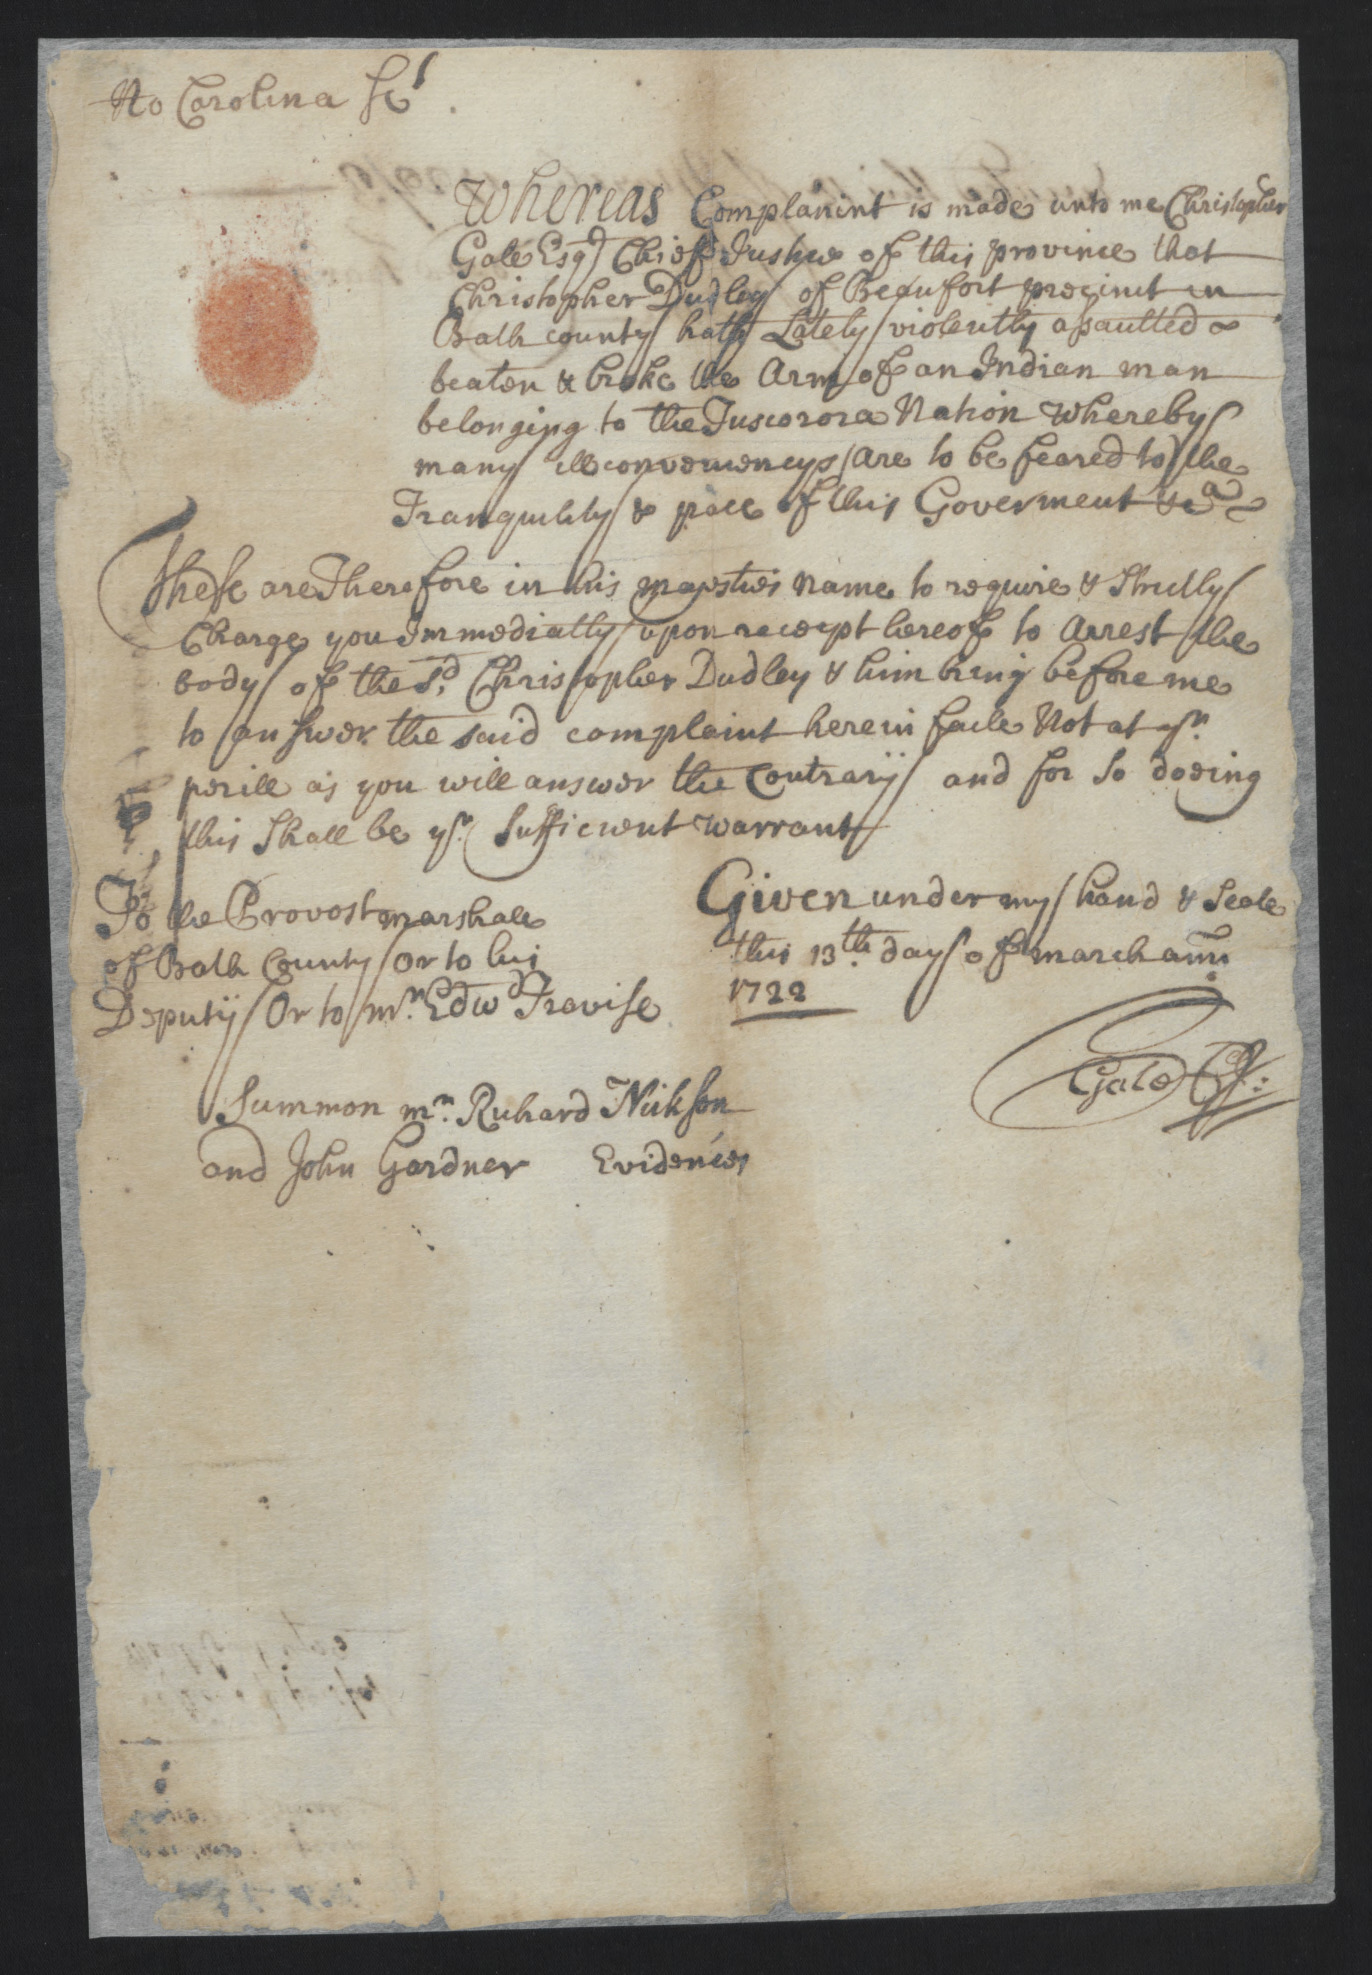 No Carolina Sct
Whereas Complanint is made unto me Christopher
Gale Esqr Chief Justice of this province that
Christopher Dudley of Beaufort precinct in
Bath county hath Lately violently assaulted &
beaten & broke the Arm of an Indian man
belonging to the Tuscorora Nation Whereby
many illconveniencys Are to be feared to the
Tranquility & pace of this Goverment &ca
These are Therefore in his majesties Name to require & Strictly
Charge you Immediatly upon receipt hereof to Arrest the
body of the sd. Christopher Dudley & him bring before me
to answer the said complaint herein faile Not at yr.
perill as you will answer the Contrary and for So doeing
this Shall be yr. Sufficient Warrant
To the Provost marshale
of Bath County Or to his
Deputy Or to mr. Edwd Travise
Given under my hand & Seale
this 13th. day of march
1722
Gale CJ:
Summon mr. Richard Nickson
and John Gardner Evidences